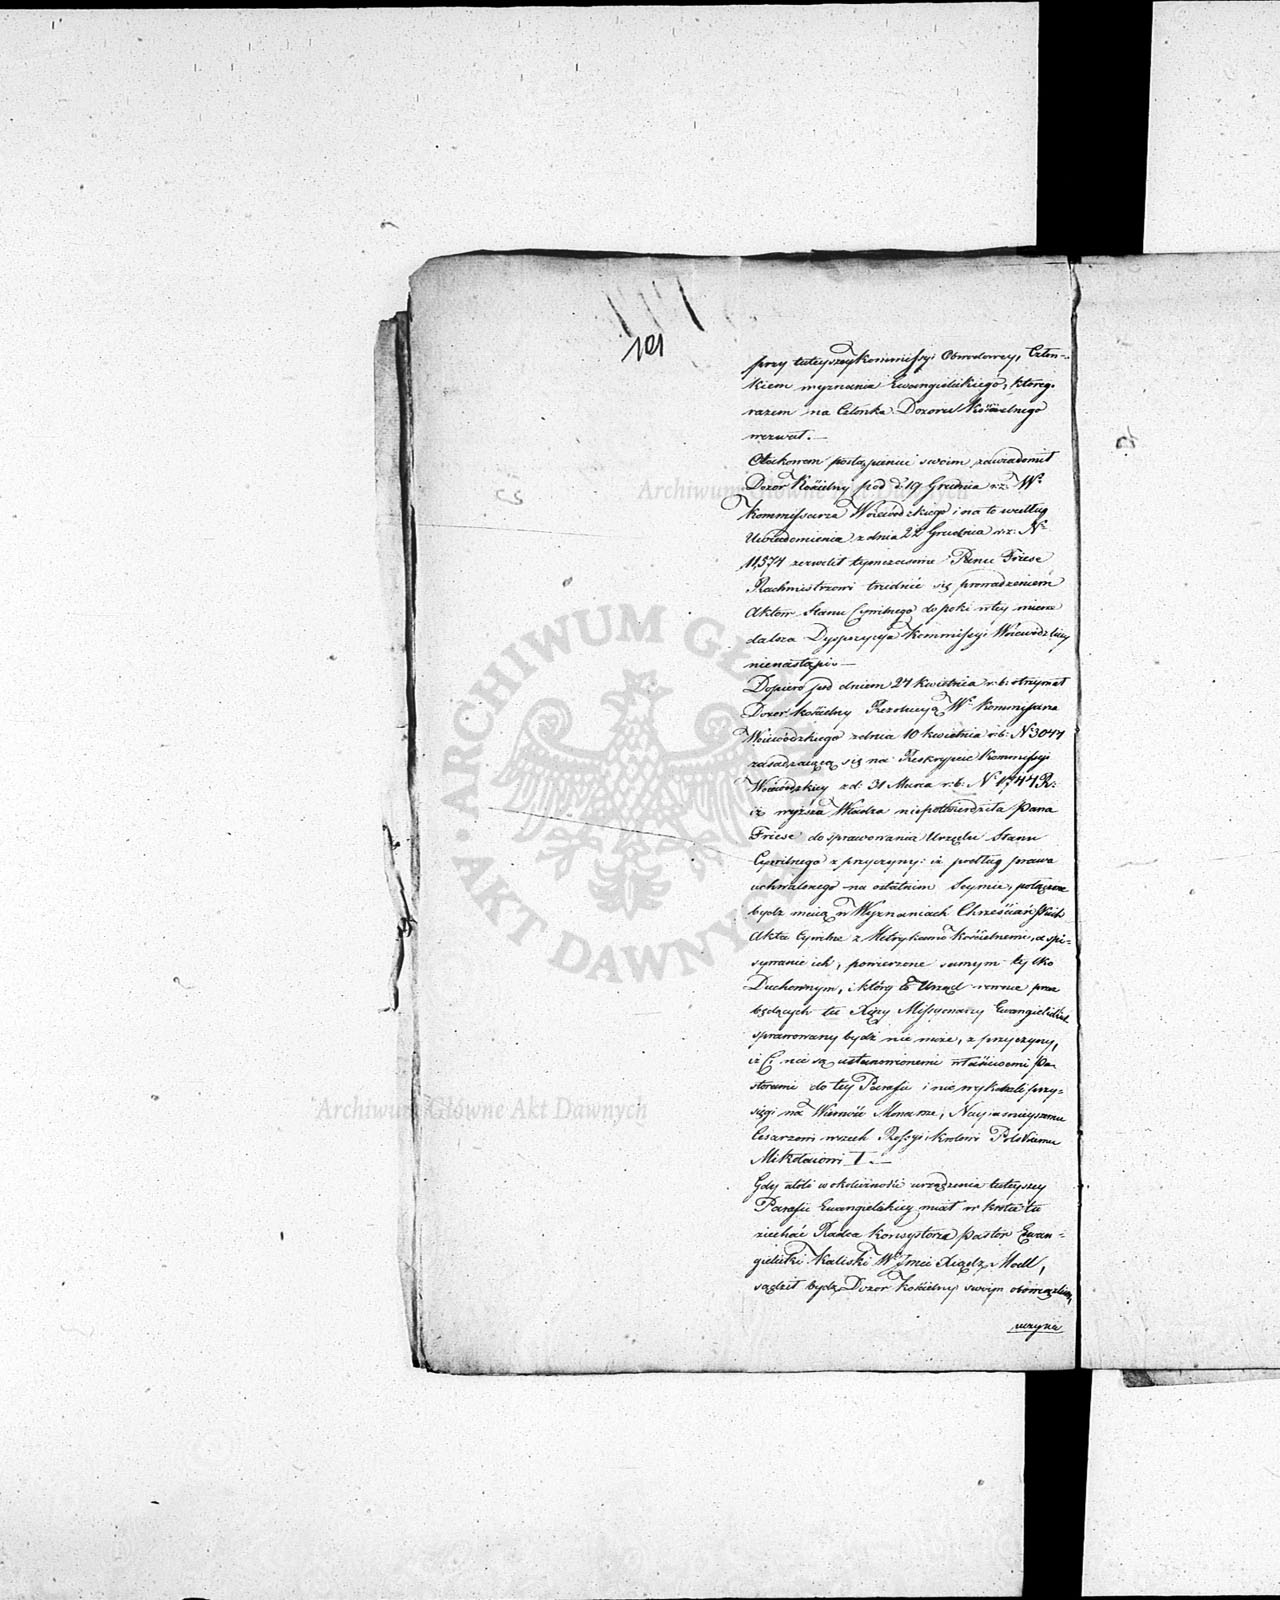 101
przy tuteyszey Kommissyi Obwodowey, Człon-
kiem wyznania Ewangielickiego, którego
razem na Członka Dozoru Kościelnego
wezwał.—
O takowem postąpieniu swoim zawiadomił
Dozor Kościelny pod d. 19 Grudnia r: z: Wº
Kommissarza Woiewódzkiego i na to według
Uwiadomienia z dnia 22 Grudnia r: z: Nº
11,574 zezwolił tymczasowie Panu Friese
Rachmistrzowi trudnić się prowadzeniem
Aktów Stanu Cywilnego dopoki w tey mierze
dalsza Dyspozycya Kommissyi Woiewódzkiey
nienastąpi.—
Dopiero pod dniem 27 Kwietnia r: b: otrzymał
Dozor Kościelny Rezolucyą Wº Kommissarza
Woiewódzkiego z dnia 10 Kwietnia r: b: N 3044
zasadzaiącą się na Reskrypcie Kommissyi
Woiewódzkiey z d: 31 Marca r: b: Nº 1,747 R:
iż wyższa Władza niepotwierdziła Pana
Friese do sprawowania Urzędu Stanu
Cywilnego z przyczyny: iż podług prawa
uchwalonego na ostatnim Seymie, połączone
bydź maią w Wyznaniach Chrześciańskich
Akta Cywilne z Metrykami Kościelnemi, a spi-
sywanie ich, powierzone samym tylko
Duchownym, i który to Urząd rownie przez
będących tu Xięży Missyonarzy Ewangielickich
sprawowany bydź nie może, z przyczyny,
iż Ci nie są ustanowionemi właściwemi Pa-
storami do tey Parafii i nie wykonali przy-
sięgi na Wierność Monarsze, Nayiaśnieyszemu
Cesarzowi wszech Rossyi Krolowi Polskiemu
Mikołaiowi I.—
Gdy atoli w okoliczności urządzenia tuteyszey
Parafii Ewangielickiey miał w krotce tu
ziechać Radca Konsystorza Pastor Ewan-
gielicki Kaliski Wº Jmci Xiądz Modl,
sądził bydź Dozor Kościelny swoim obowiązkiem,